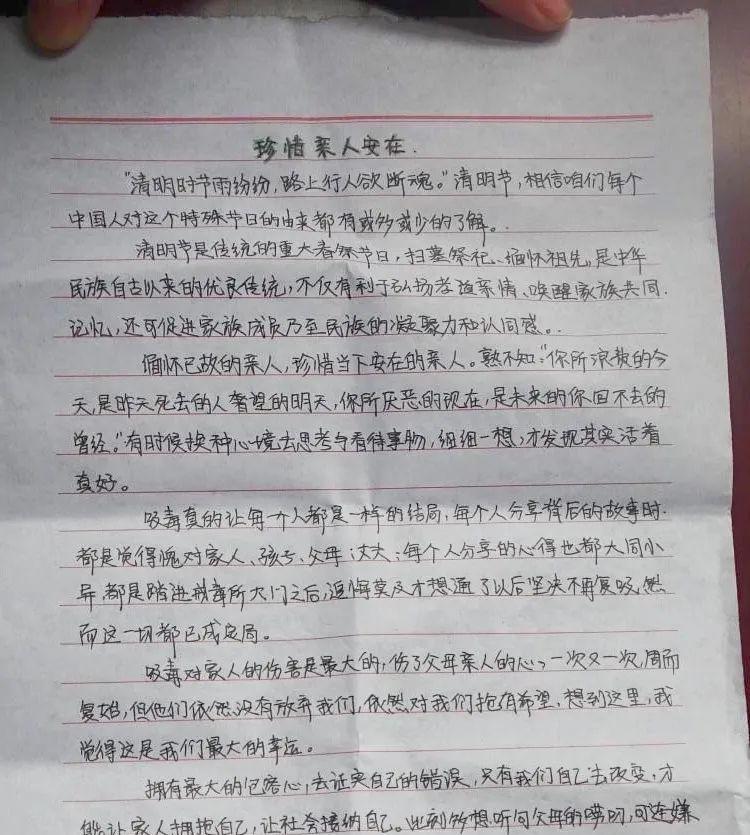 珍惜亲人安在.
“清明时节雨纷纷,路上行人欲断魂。”清明节,相信咱们每个
中国人对这个特殊节日的由来都有或多或少的了解。
清明节是传统的重大春祭节日,扫墓祭祀、缅怀祖先,是中华
民族自古以来的优良传统,不仅有利于弘扬孝道亲情、唤醒家族共同
记忆,还可促进家族成员乃至民族的凝聚力和认同感。
缅怀已故的亲人,珍惜当下安在的亲人。熟不知:“你所浪费的今
天,是昨天死去的人奢望的明天,你所厌恶的现在,是未来的你回不去的
曾经。”有时候换种心境去思考与看待事物,细细一想,才发现其实活着
真好。
吸毒真的让每一个人都是一样的结局,每个人分享背后的故事时.
都是觉得愧对家人、孩子、父母、丈夫;每个人分享的心得也都大同小
异都是踏进戒毒所大门之后,追悔莫及才想通了以后坚决不再复吸,然
而这一切都已成定局。
吸毒对家人的伤害是最大的,伤了父母亲人的心,一次又一次,周而
复始,但他们依然没有放弃我们,依然对我们抱有希望,想到这里,我
觉得这是我们最大的幸运。
拥有最大的包容心,去证实自己的错误,只有我们自己去改变,才
能让家人拥抱自己,让社会接纳自己。此刻多想听句父母的唠叨,可连嫌